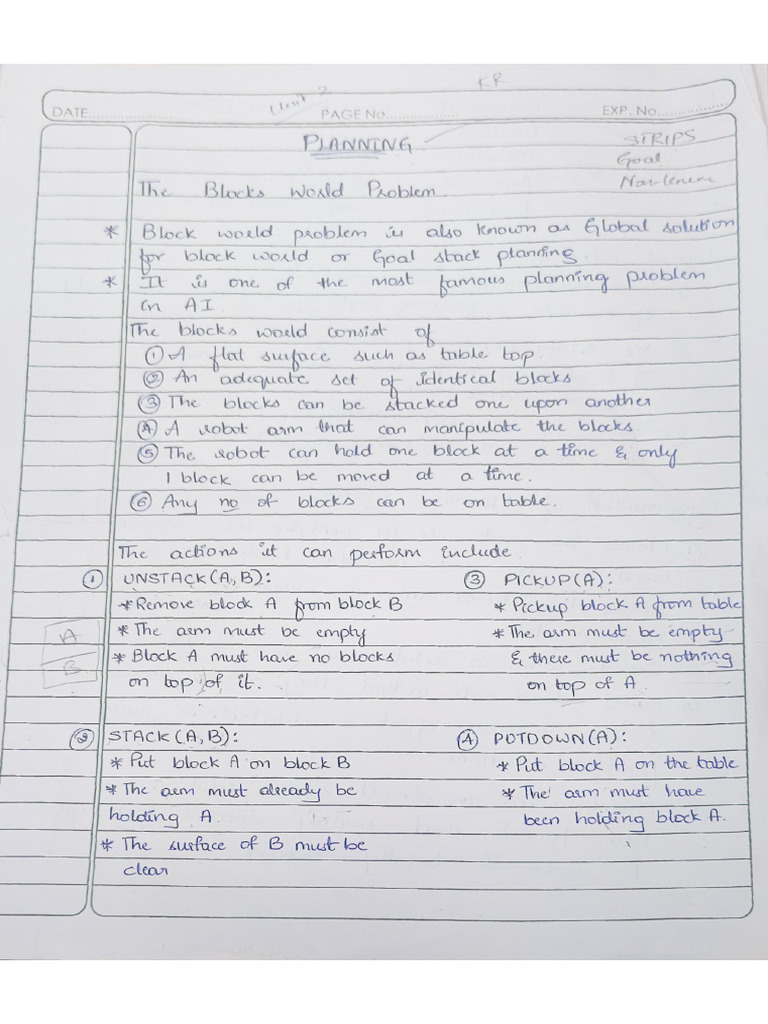 KR
Unit 2
DATE.................... PAGE No.................. EXP. No.................
PLANNING
STRIPS
Goal
The Blocks World Problem
* Block world problem is also known as Global solution
for block world or Goal stack planning.
* It is one of the most famous planning problem
in AI
The blocks world consist of
① A flat surface such as table top.
② An adequate set of identical blocks
③ The blocks can be stacked one upon another
④ A robot arm that can manipulate the blocks
⑤ The robot can hold one block at a time & only
1 block can be moved at a time.
⑥ Any no of blocks can be on table.
The actions it can perform include
① UNSTACK(A,B):
* Remove block A from block B
* The arm must be empty
* Block A must have no blocks
on top of it.
A
B
③ PICKUP(A):
* Pickup block A from table
* The arm must be empty
& there must be nothing
on top of A
② STACK(A,B):
* Put block A on block B
* The arm must already be
holding A
* The surface of B must be
clear
④ POTDOWN(A):
* Put block A on the table
* The arm must have
been holding block A.